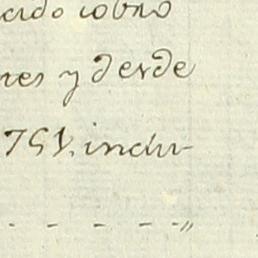 cido cobro
res y desde
751, inclu-
- - - - - „